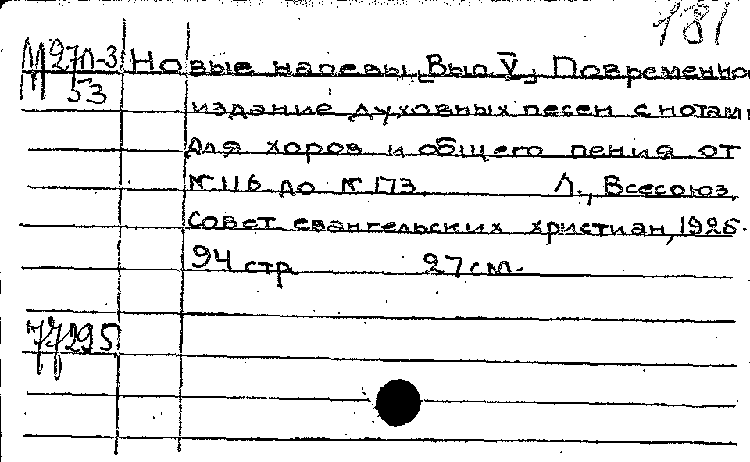 181
М 270-3 Новые напевы, Вып. V, Повременно
53 издание духовных песен с нотами
для хоров и общего пения от
№ 116 до № 173. Л., Всесоюз.
совет евангельских христиан, 1925.
94 стр 27 см.
77295